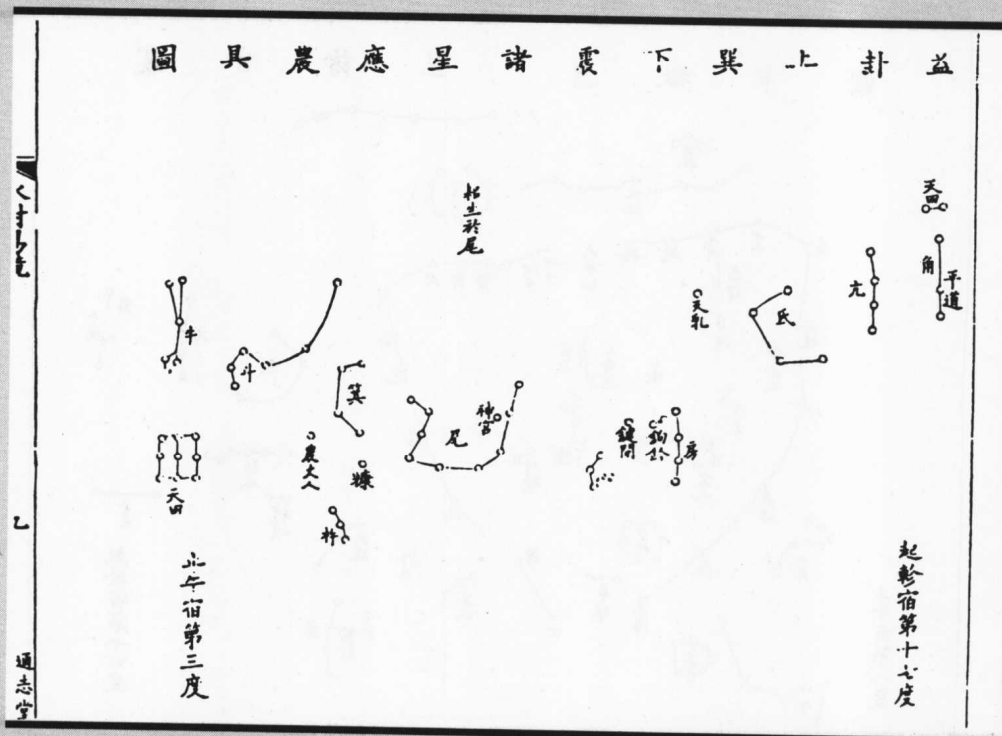 益卦上巽下震諸星應農具圖
天田
平道
角
亢
氐
天乳
房
鈎鈐
鍵閉
神宮
尾
柘生於尾
箕
糠
農丈人
杵
斗
牛
天田
起軫宿第十七度
止牛宿第三度
通志堂